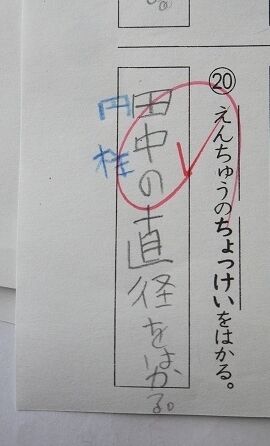 ⑳ えんちゅうのちょっけいをはかる。
田中の直径をはかる。
円柱